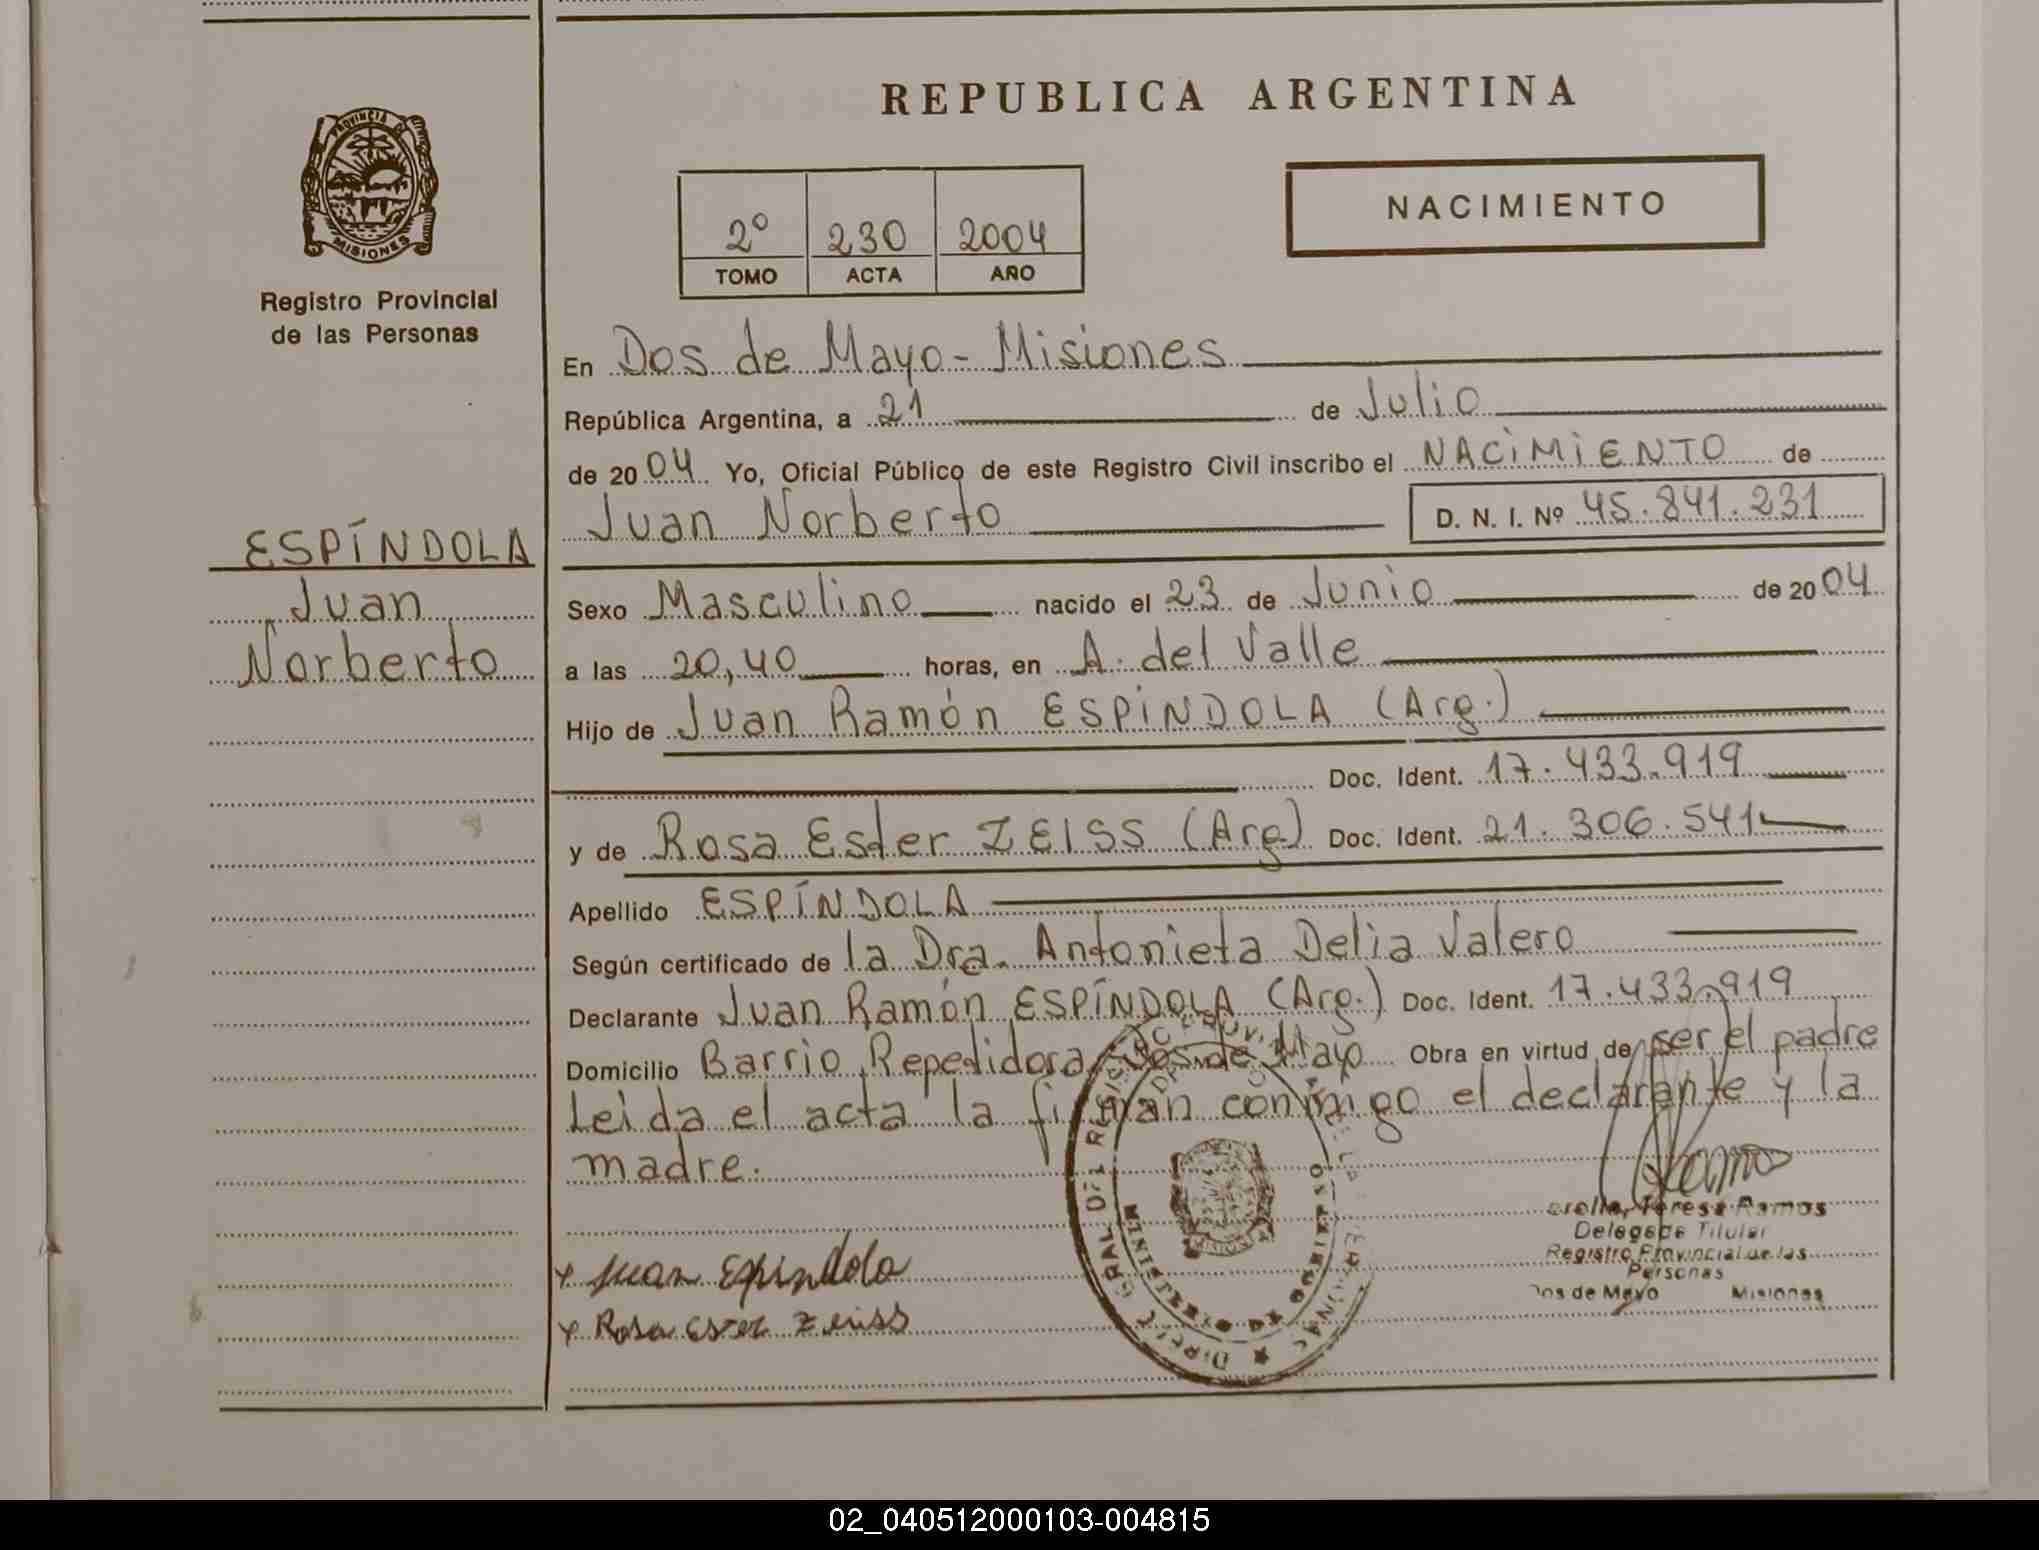 REPUBLICA ARGENTINA
PROVINCIA DE
MISIONES
Registro Provincial
de las Personas
2º 230 2004
TOMO ACTA AÑO
NACIMIENTO
En Dos de Mayo - Misiones
República Argentina, a 21 de Julio
de 2004 Yo, Oficial Público de este Registro Civil inscribo el NACIMIENTO de
Juan Norberto D. N. I. Nº 45.841.231
ESPÍNDOLA
Juan
Norberto
Sexo Masculino nacido el 23 de Junio de 2004
a las 20,40 horas, en A. del Valle
Hijo de Juan Ramón ESPÍNDOLA (Arg.)
Doc. Ident. 17.433.919
y de Rosa Ester ZEISS (Arg) Doc. Ident. 21.306.541
Apellido ESPÍNDOLA
Según certificado de la Dra. Antonieta Delia Valero
Declarante Juan Ramón ESPÍNDOLA (Arg.) Doc. Ident. 17.433.919
Domicilio Barrio Repetidora, Dos de Mayo Obra en virtud de ser el padre
Leida el acta la firman conmigo el declarante y la
madre.
x Juan Espindola
x Rosa Ester Zeiss
Teresa Ramos
Delegada Titular
Registro Provincial de las
Personas
Dos de Mayo Misiones
02_040512000103-004815